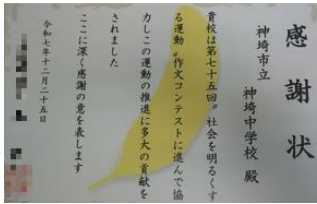 感謝状
神埼市立 神埼中学校 殿
貴校は第七十五回〝社会を明るくす
る運動〟作文コンテストに進んで協
力しこの運動の推進に多大の貢献を
されました
ここに深く感謝の意を表します
令和七年十二月二十五日